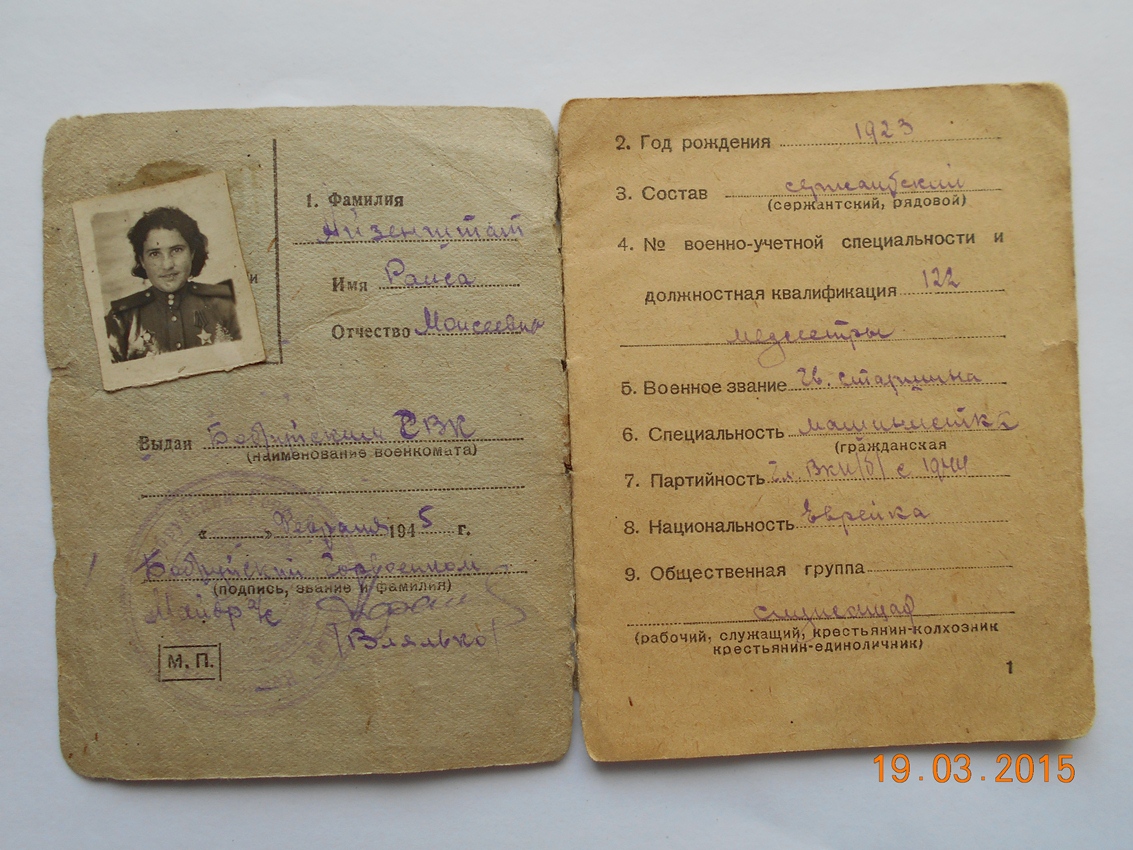 1. Фамилия
Айзенштат
Имя Раиса
Отчество Моисеевна
Выдан Бобруйским ГВК
(наименование военкомата)
« » Февраля 1945 г.
Бобруйский Горвоенком
(подпись, звание и фамилия)
Майор а/с
М. П.
2. Год рождения 1923
3. Состав сержантский
(сержантский, рядовой)
4. № военно-учетной специальности и
должностная квалификация 122
медсестры
5. Военное звание гв. старшина
6. Специальность машинистка
(гражданская
7. Партийность чл. ВКП(б) с 1944
8. Национальность Еврейка
9. Общественная группа
служащая
(рабочий, служащий, крестьянин-колхозник
крестьянин-единоличник)
1
19.03.2015